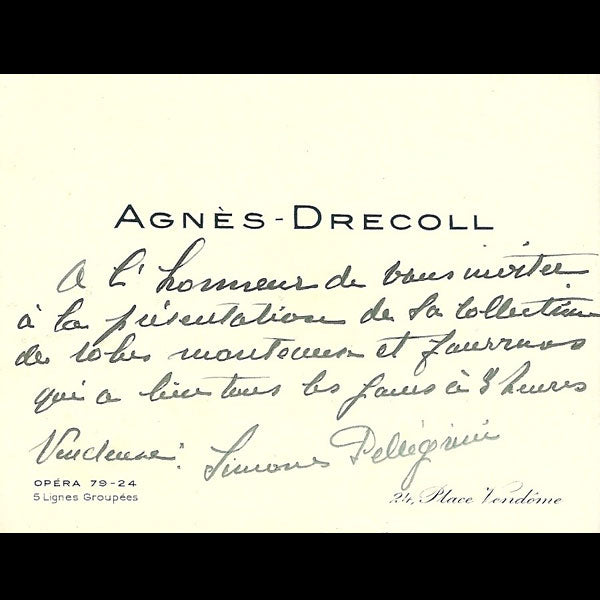 AGNÈS-DRECOLL
A l'honneur de vous inviter
à la présentation de sa collection
de robes manteaux et fourrures
qui a lieu tous les jours à 3 heures
Vendeuse: Simone Pellégrini
OPÉRA 79-24
5 Lignes Groupées
24, Place Vendôme